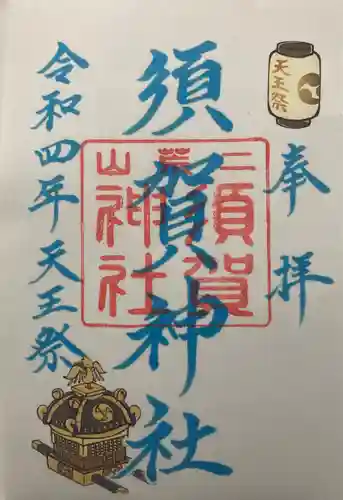 天王祭
奉拝
須賀神社
令和四年天王祭
二荒山
須賀
神社